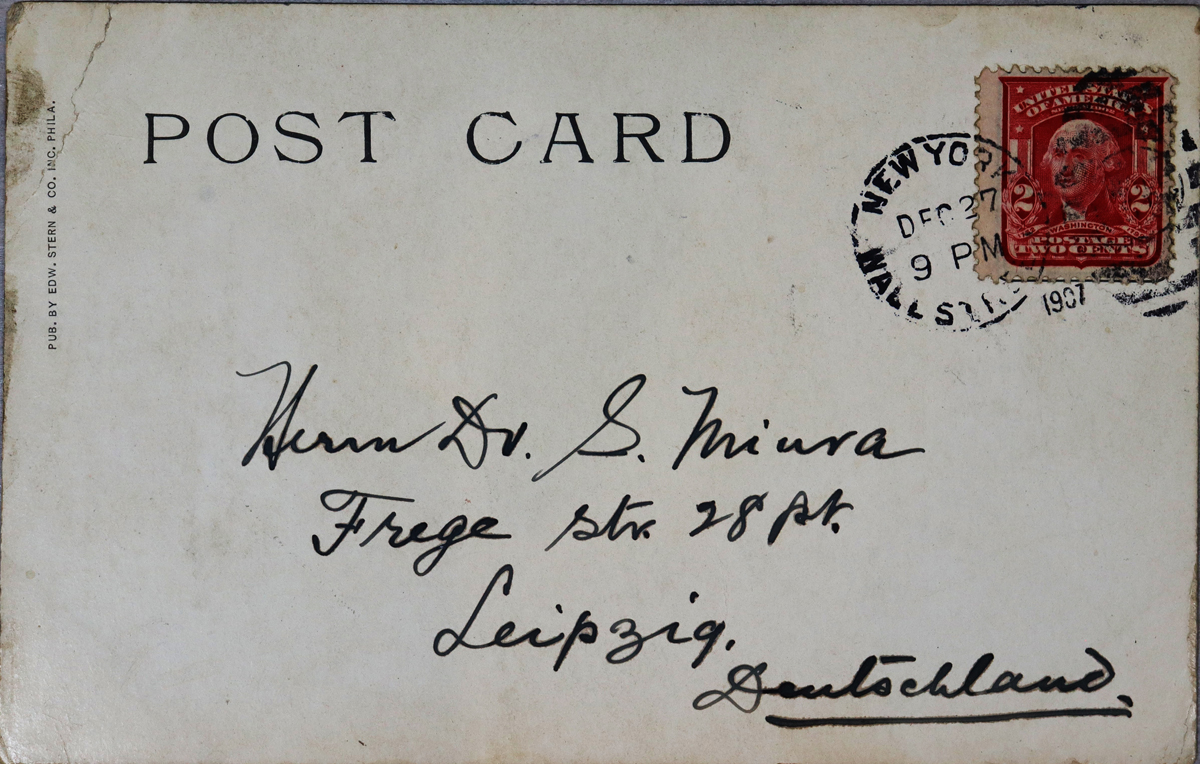 POST CARD
PUB. BY EDW. STERN & CO. INC. PHILA.
UNITED STATES
OF AMERICA
2 2
WASHINGTON
POSTAGE
TWO CENTS
NEW YORK
DEC 27
9 PM
1907
WALL ST.
Herrn Dr. S. Miura
Frege str. 28 pt.
Leipzig.
Deutschland.